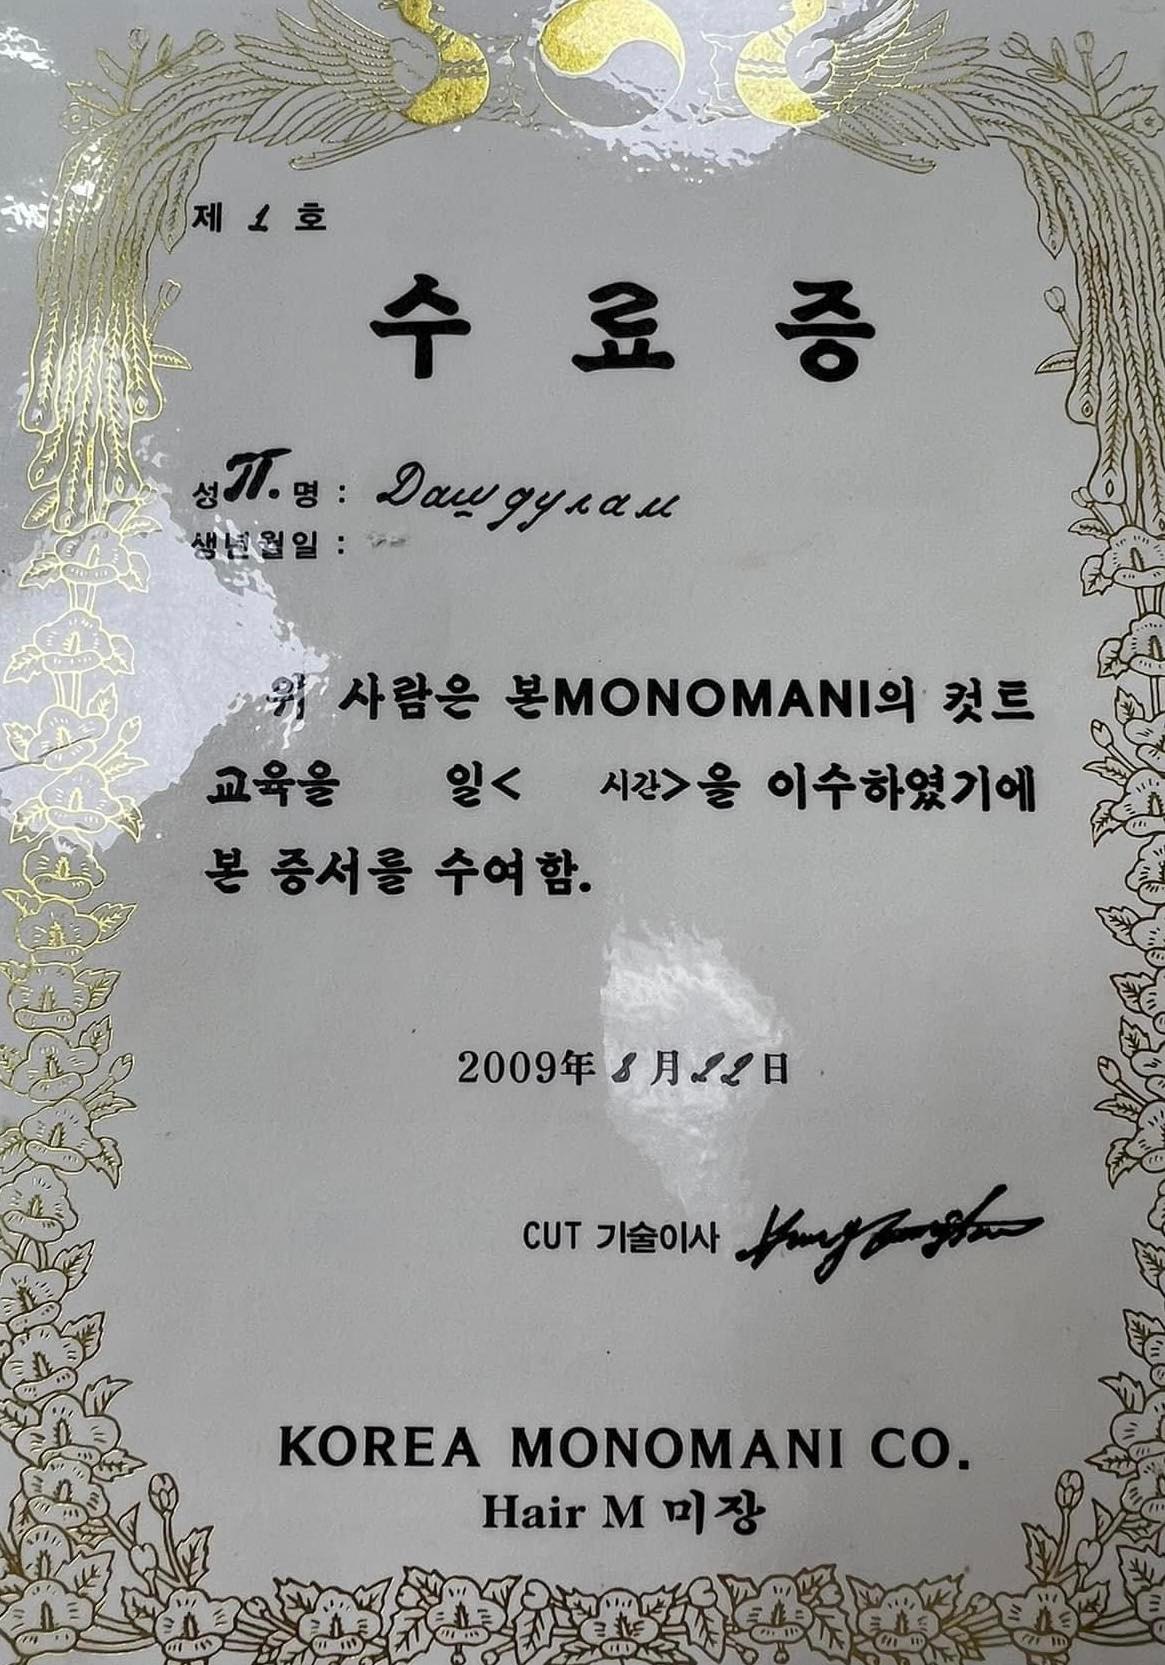 제 1 호
수 료 증
성 П. 명 : Дашдулам
생년월일 :
위 사람은 본MONOMANI의 컷트
교육을 일< 시간>을 이수하였기에
본 증서를 수여함.
2009年 8月22日
CUT 기술이사
KOREA MONOMANI CO.
Hair M 미장